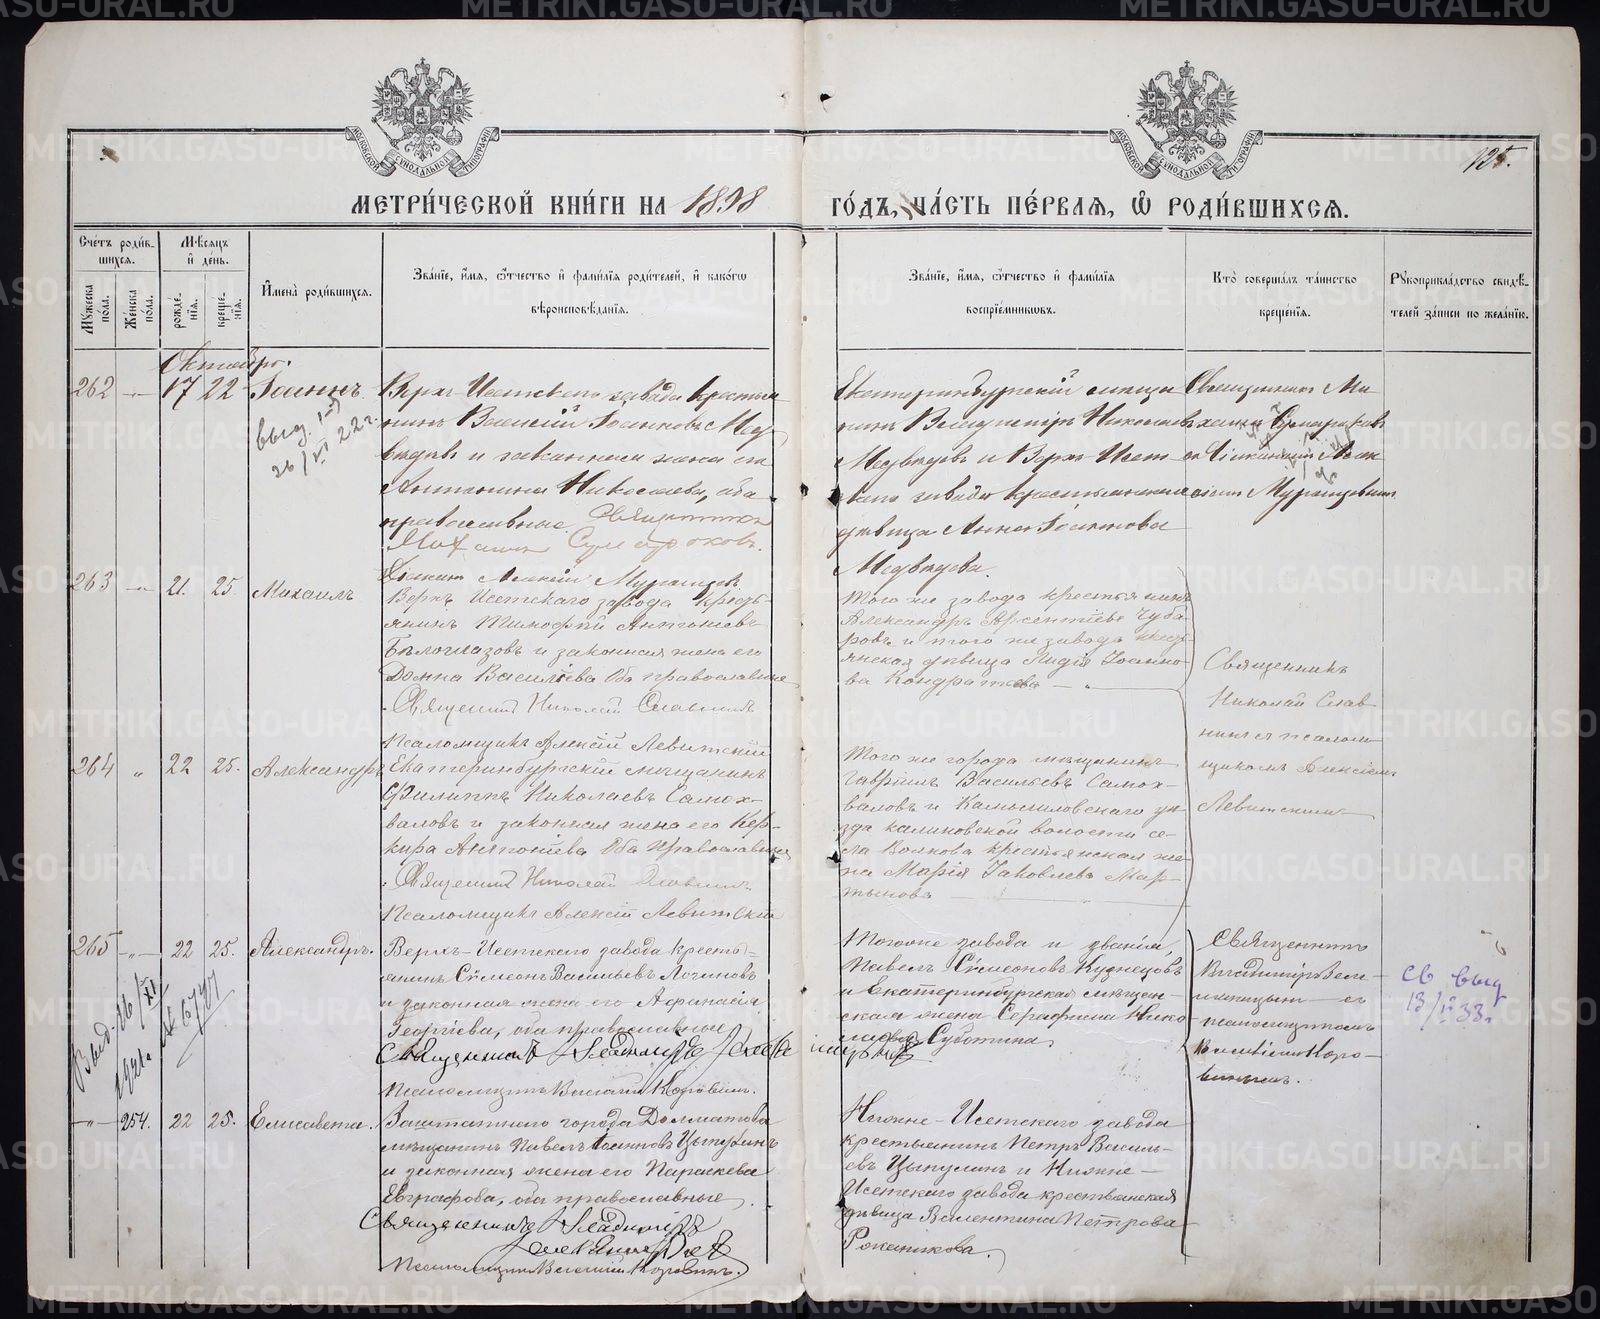 МЕТРИ́ЧЕСКОЙ КНИ́ГИ НА 1898 ГО́ДЪ, ЧА́СТЬ ПЕ́РВАЯ, Ѡ РОДИ́ВШИХСЯ.
125.
Сче́тъ роди́в-
шихся.
Му́жеска пола.
Же́нска по́ла.
Мѣ́сяцъ
и҆ де́нь.
рожде́-
нїя.
креще́-
нїя.
И҆мена̀ роди́вшихся.
Зва́нїе, и҆́мя, ѻ҆́тчество и҆ фами́лїя роди́телей, и҆ како́гѡ
вѣроисповѣ́данїя.
Зва́нїе, и҆́мя, ѻ҆́тчество и҆ фами́лїя
воспрїе́мниковъ.
Кто̀ соверша́лъ та́инство
креще́нїя.
Рукоприкла́дство свидѣ́-
телей за́писи по жела́нїю.
Октябрь.
262 -„- 17 22 Іоаннъ.
выд.
26/VI 22 г.
Верх-Исетскаго завода крестья-
нинъ Василій Іоанновъ Мед-
вѣдевъ и законная жена его
Антонина Николаева, оба
православные. Священникъ
Михаилъ Сумароковъ.
Діаконъ Алексій Мурашовъ
Екатеринбургскій мѣща-
нинъ Владиміръ Николаевъ
Медвѣдевъ и Верх-Исет-
скаго завода крестьянская
дѣвица Анна Іоаннова
Медвѣдева.
Священникъ Ми-
хаилъ Сумароковъ
263 -„- 21. 25. Михаилъ
Верхъ Исетскаго завода кресть-
янинъ Тимофей Антоніевъ
Бѣлоглазовъ и законная жена его
Домна Василіева Оба православные
Священникъ Николай Славнинъ
Псаломщикъ Алексій Левитскій
Того же завода крестьянинъ
Александръ Арсентіевъ Чуба-
ровъ и того же завода кресть-
янская дѣвица Лидія Іоанно-
ва Кондратьева
Священникъ
Николай Слав-
нинъ съ псалом-
щикомъ Алексіемъ
Левитскимъ
264 „ 22 25. Александръ
Екатеринбургскій мѣщанинъ
Филиппъ Николаевъ Самох-
валовъ и законная жена его Кер-
кира Антоніева Оба Православные
Священникъ Николай Славнинъ
Псаломщикъ Алексій Левитскій
Того же города мѣщанинъ
Гавріилъ Васильевъ Самох-
валовъ и Камышловскаго уѣ-
зда калиновской волости се-
ла Волкова крестьянская же-
на Марія Іаковлева Мар-
тынова
265 -„- 22 25. Александръ.
Выд. 26/XI
1921 № 6747
Верхъ-Исетскаго завода кресть-
янинъ Сѵмеонъ Васильевъ Логиновъ
и законная жена его Афанасія
Георгіева, оба православные
Священникъ Владиміръ
Псаломщикъ Василій Коровинъ.
Тогоже завода и званія,
Павелъ Сѵмеоновъ Кузнецовъ
и Екатеринбургская мѣщан-
ская жена Серафима Нико-
лаева Суботина.
Священникъ
Владиміръ
съ
псаломщикомъ
Василіемъ Коро-
винымъ.
св выд
13/II 33 г
-„- 254. 22 25. Елисавета.
Заштатнаго города Долматова
мѣщанинъ Павелъ Іоанновъ Цыпулинъ
и законная жена его Параскева
Евграфова, оба православные
Священникъ Владиміръ
Псаломщикъ Василій Коровинъ.
Нижне-Исетскаго завода
крестьянинъ Петръ Василь-
евъ Цыпулинъ и Нижне-
Исетскаго завода крестьянская
дѣвица Валентина Петрова
METRIKI.GASO-URAL.RU